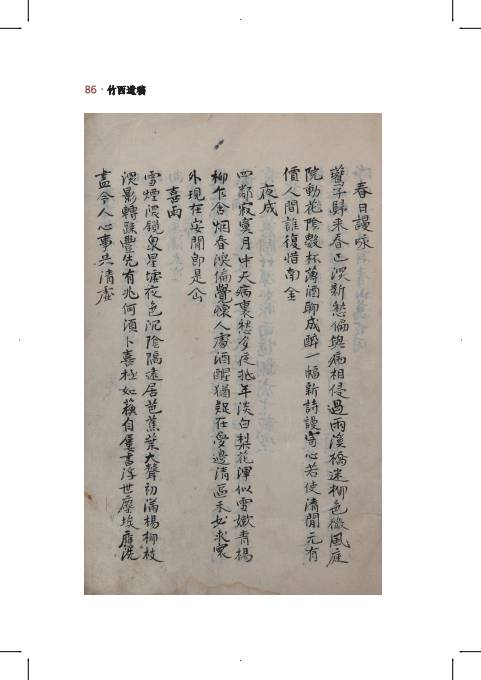 86 · 竹西遺稿
春日謾咏
鸎子歸來春已深新愁偏與病相侵過雨溪橋迷柳色微風庭
院動花陰數杯薄酒聊成醉一幅新詩謾寄心若使清閒元有
價人間誰復惜南金
夜成
四鄰寂寞月中天病裏愁多夜抵年淡白梨花渾似雪嫩青楊
柳乍含烟春深偏覺懷人處酒醒猶疑在邊清區未必求
外現在安閒卽是仙
喜雨
雲煙深鎖泉星墟夜色沉陰隔遠居芭蕉葉大聲初滿楊柳枝
深影轉踈豐先有兆何須卜喜極如蘓自屢書浮世塵埃庶洗
盡令人心事共清虛